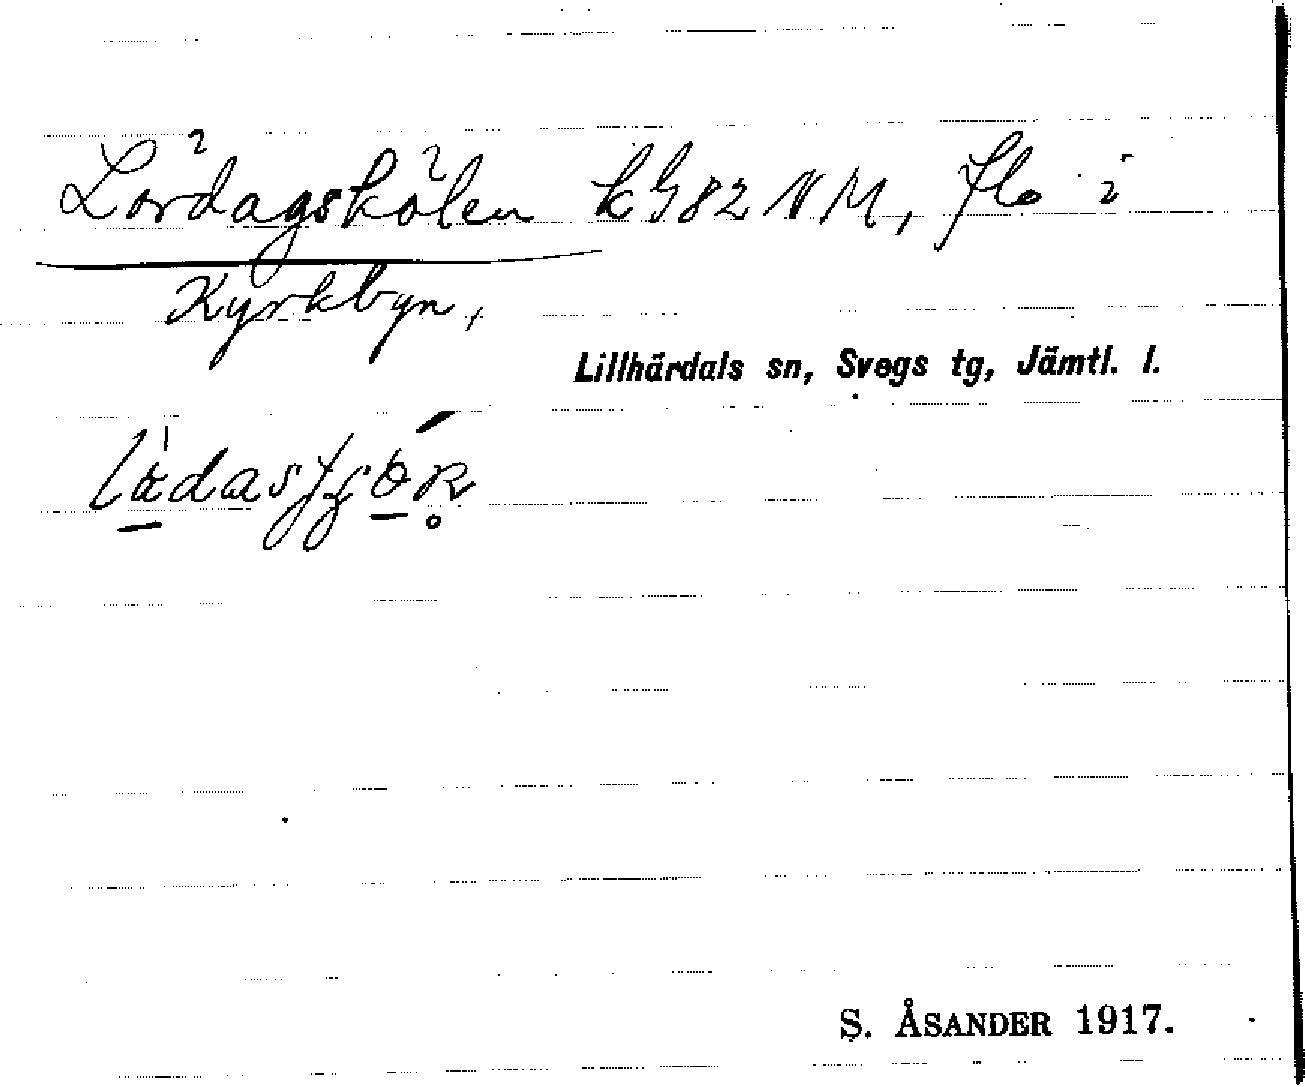 Lördagskölen kG82NM, flo i
Kyrkbyn,
Lillhärdals sn, Svegs tg, Jämtl. l.
S. ÅSANDER 1917.